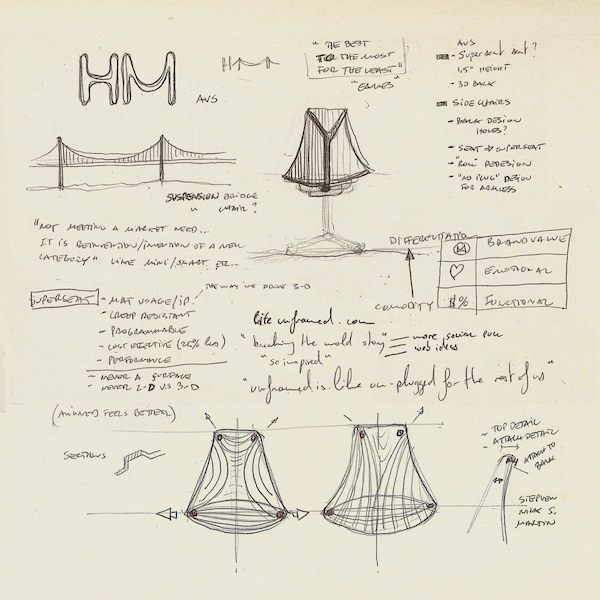 HM
HM
AVS
"THE BEST
TO THE MOST
FOR THE LEAST"
"EAMES"
AVS
- SUPERSEAT SEAT?
1.5" HEIGHT
- 3D BACK
SIDE CHAIRS
- BACK DESIGN
HOLES?
- SEAT ⇒ SUPERSEAT
- "ROLL" REDESIGN
- "NO PLUG" DESIGN
FOR ARMLESS
SUSPENSION BRIDGE
" CHAIR?
"NOT MEETING A MARKET NEED...
IT IS REINVENTION/INVENTION OF A NEW
CATEGORY" LIKE MINI/SMART ETC..
DIFFERENTIATION
COMODITY
M BRAND VALUE
♡ EMOTIONAL
$% FUNCTIONAL
THE WAY WE DRIVE 3-D
SUPERSEAT
- MAT USAGE/IP!
- CREEP RESISTANT
- PROGRAMMABLE
- COST EFFECTIVE (25% less)
- PERFORMANCE
- NEVER A SURFACE
- NEVER 2-D V.S 3-D
life unframed.com
"breaking the mold story"
- more social pull
- web ideas
"so inspired"
"unframed is like un-plugged for the rest of us"
(ALIGNED FEELS BETTER)
SECTIONS
- TOP DETAIL
- ATTACH DETAIL
ATTACH TO
BACK
STEPHEN
NICK S.
MARTIN